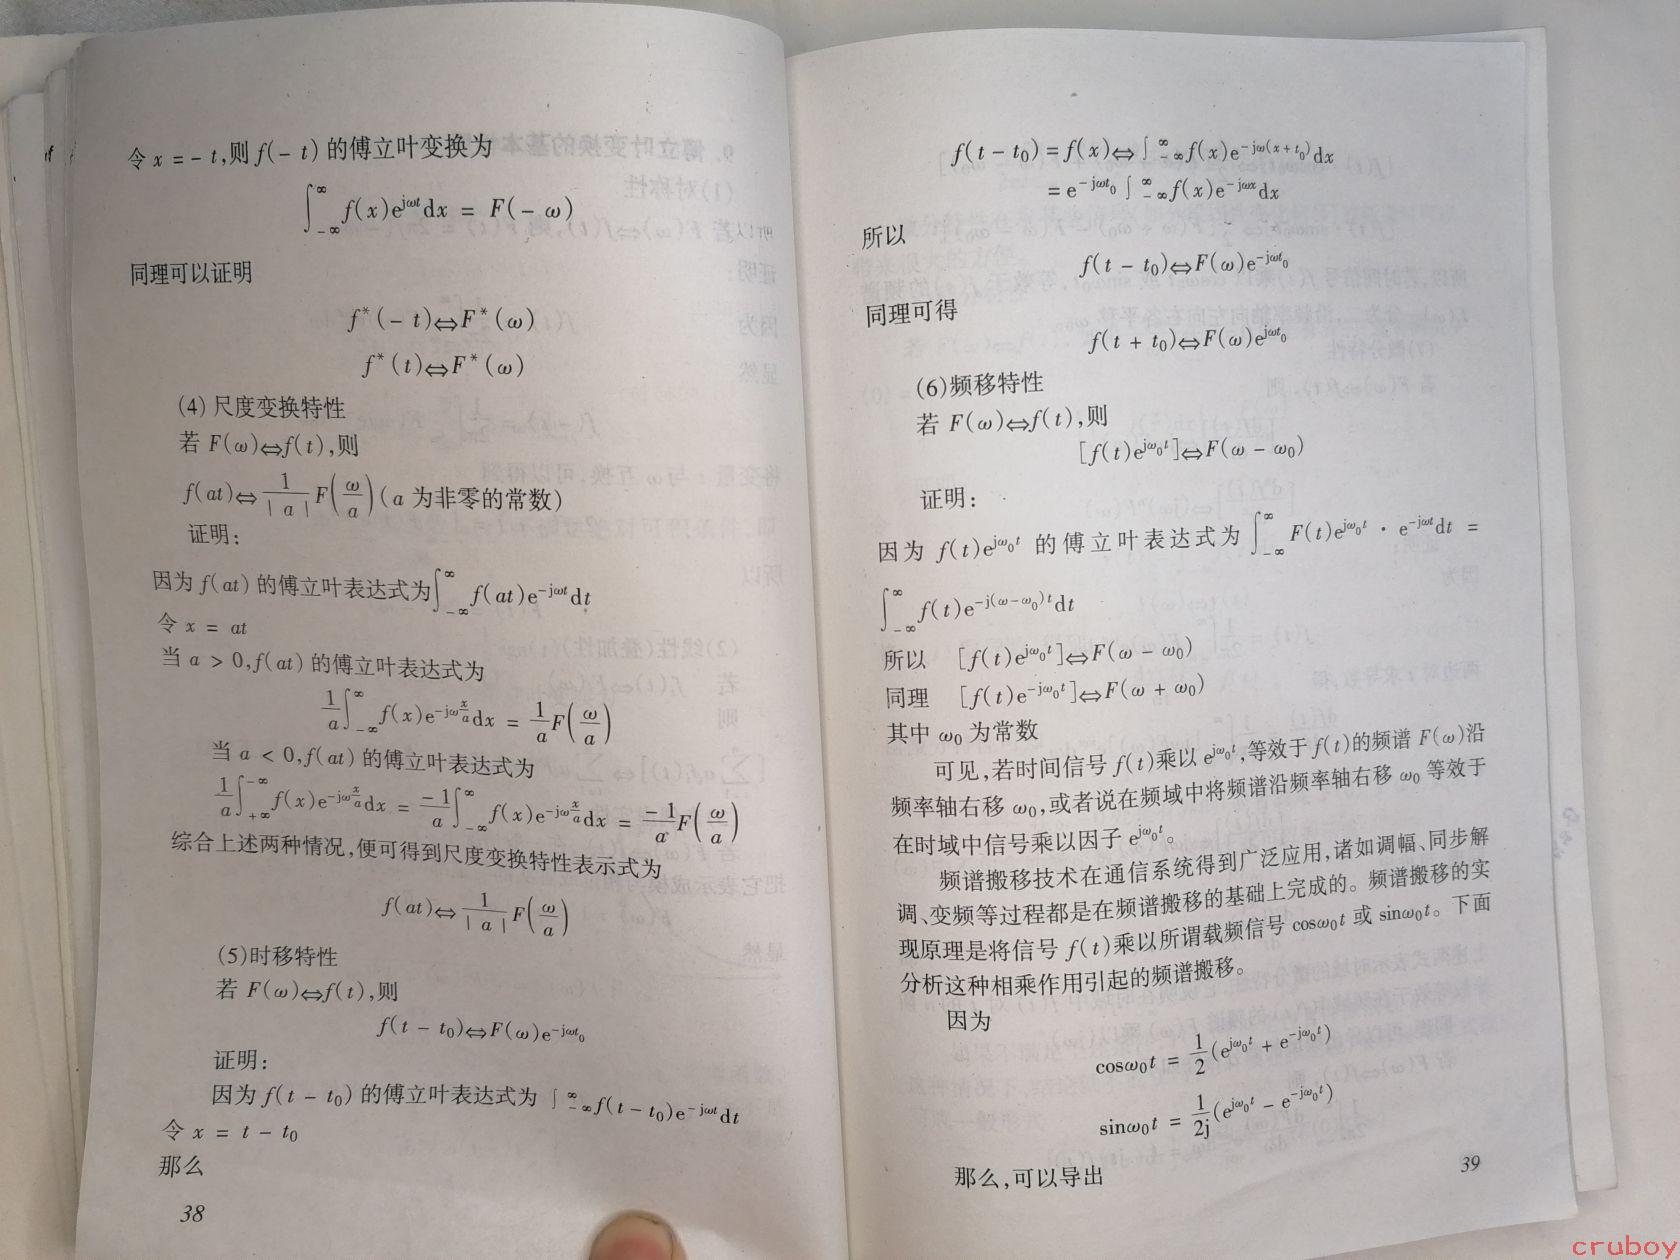 令 x = - t,则 f(- t) 的傅立叶变换为
∫_{-∞}^{∞} f(x)e^{jωt}dx = F(- ω)
同理可以证明
f*(- t)⇔F*(ω)
f*(t)⇔F*(ω)
(4) 尺度变换特性
若 F(ω)⇔f(t),则
f(at)⇔\frac{1}{|a|}F(\frac{ω}{a})(a 为非零的常数)
证明:
因为 f(at) 的傅立叶表达式为∫_{-∞}^{∞} f(at)e^{-jωt}dt
令 x = at
当 a > 0,f(at) 的傅立叶表达式为
\frac{1}{a}∫_{-∞}^{∞} f(x)e^{-jω\frac{x}{a}}dx = \frac{1}{a}F(\frac{ω}{a})
当 a < 0,f(at) 的傅立叶表达式为
\frac{1}{a}∫_{+∞}^{-∞} f(x)e^{-jω\frac{x}{a}}dx = \frac{-1}{a}∫_{-∞}^{∞} f(x)e^{-jω\frac{x}{a}}dx = \frac{-1}{a}F(\frac{ω}{a})
综合上述两种情况,便可得到尺度变换特性表示式为
f(at)⇔\frac{1}{|a|}F(\frac{ω}{a})
(5)时移特性
若 F(ω)⇔f(t),则
f(t - t_0)⇔F(ω)e^{-jωt_0}
证明:
因为 f(t - t_0) 的傅立叶表达式为 ∫_{-∞}^{∞}f(t - t_0)e^{-jωt}dt
令 x = t - t_0
那么
38
f(t - t_0) = f(x)⇔∫_{-∞}^{∞}f(x)e^{-jω(x+t_0)}dx
= e^{-jωt_0}∫_{-∞}^{∞}f(x)e^{-jωx}dx
所以
f(t - t_0)⇔F(ω)e^{-jωt_0}
同理可得
f(t + t_0)⇔F(ω)e^{jωt_0}
(6)频移特性
若 F(ω)⇔f(t),则
[f(t)e^{jω_0t}]⇔F(ω - ω_0)
证明:
因为 f(t)e^{jω_0t} 的傅立叶表达式为∫_{-∞}^{∞} F(t)e^{jω_0t} · e^{-jωt}dt =
∫_{-∞}^{∞} f(t)e^{-j(ω-ω_0)t}dt
所以 [f(t)e^{jω_0t}]⇔F(ω - ω_0)
同理 [f(t)e^{-jω_0t}]⇔F(ω + ω_0)
其中 ω_0 为常数
可见,若时间信号 f(t)乘以 e^{jω_0t},等效于 f(t)的频谱 F(ω)沿
频率轴右移 ω_0,或者说在频域中将频谱沿频率轴右移 ω_0 等效于
在时域中信号乘以因子 e^{jω_0t}。
频谱搬移技术在通信系统得到广泛应用,诸如调幅、同步解
调、变频等过程都是在频谱搬移的基础上完成的。频谱搬移的实
现原理是将信号 f(t)乘以所谓载频信号 cosω_0t 或 sinω_0t。下面
分析这种相乘作用引起的频谱搬移。
因为
cosω_0t = \frac{1}{2}(e^{jω_0t} + e^{-jω_0t})
sinω_0t = \frac{1}{2j}(e^{jω_0t} - e^{-jω_0t})
那么,可以导出
39
cruboy